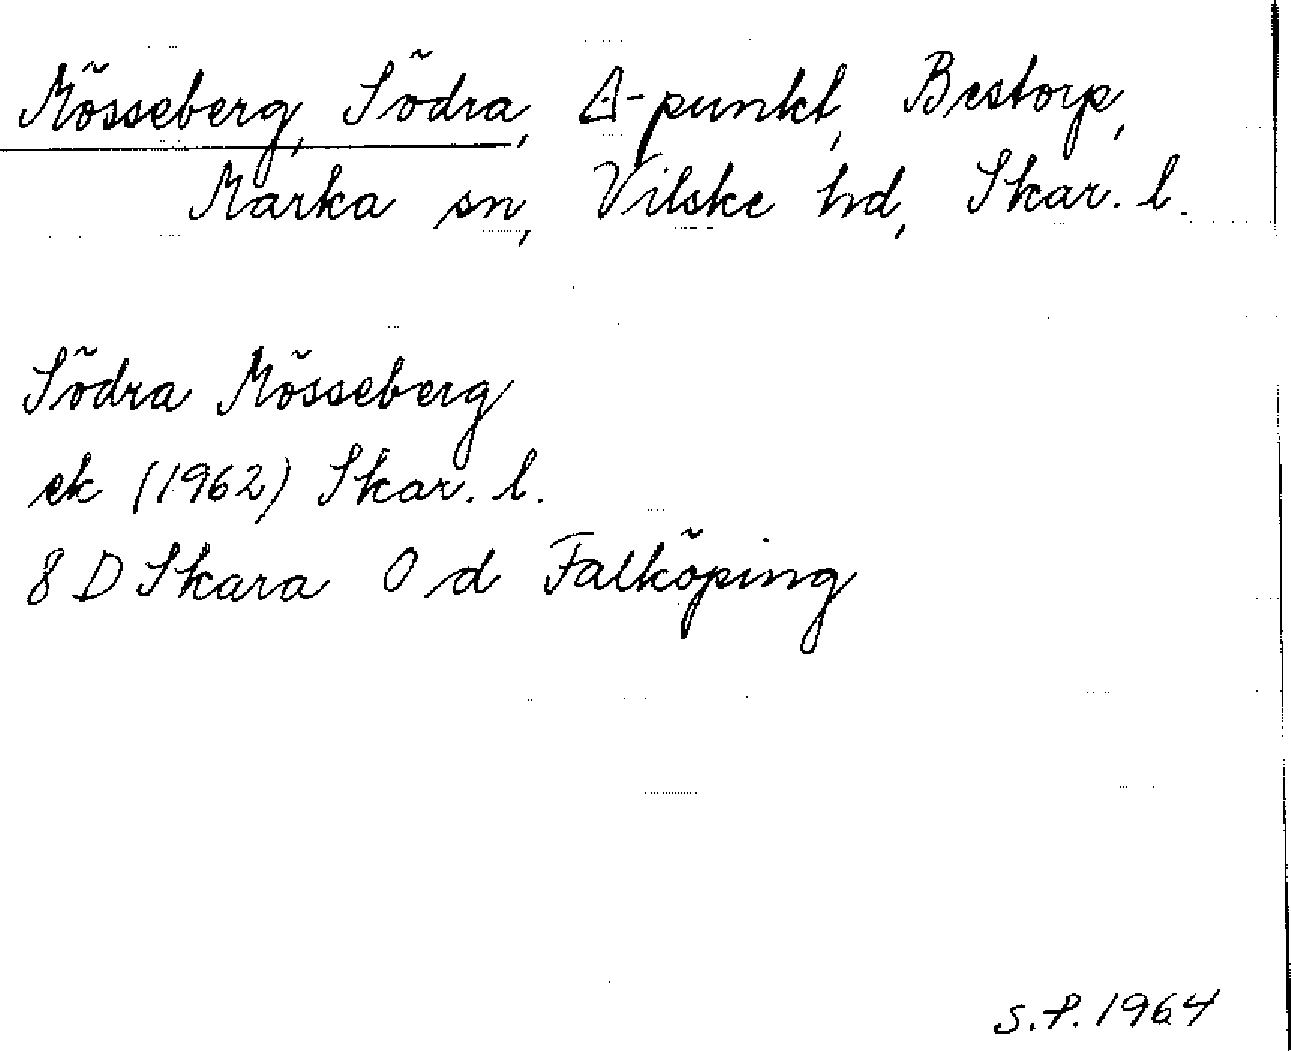 Mösseberg, Södra, △-punkt, Bestorp,
Marka sn, Vilske hd, Skar. l.
Södra Mösseberg
ek (1962) Skar. l.
8 D Skara 0 d Falköping
S.P. 1964